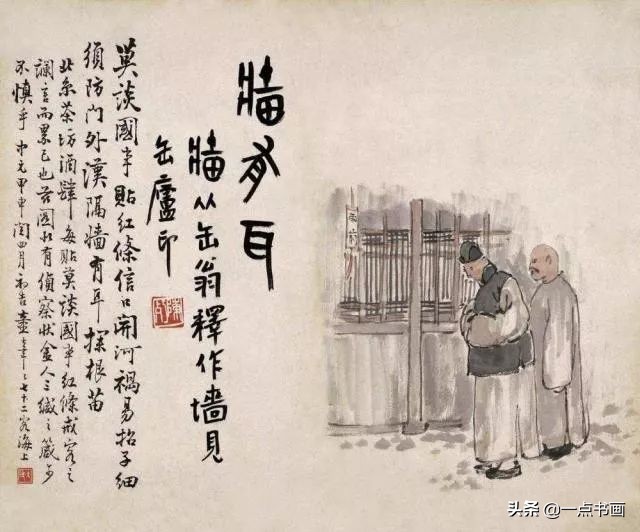 牆有耳
牆从缶翁釋作墻見
缶廬印
莫談國事貼紅條信口開河禍易招子細
須防門外漢隔牆有耳探根苗
北京茶坊酒肆每貼莫談國事紅條戒客之
讕言而累己也圖有偵察狀金人三緘之箴可
不慎乎中元甲申閏四月初吉童大年七十二客海上
头条 @一点书画